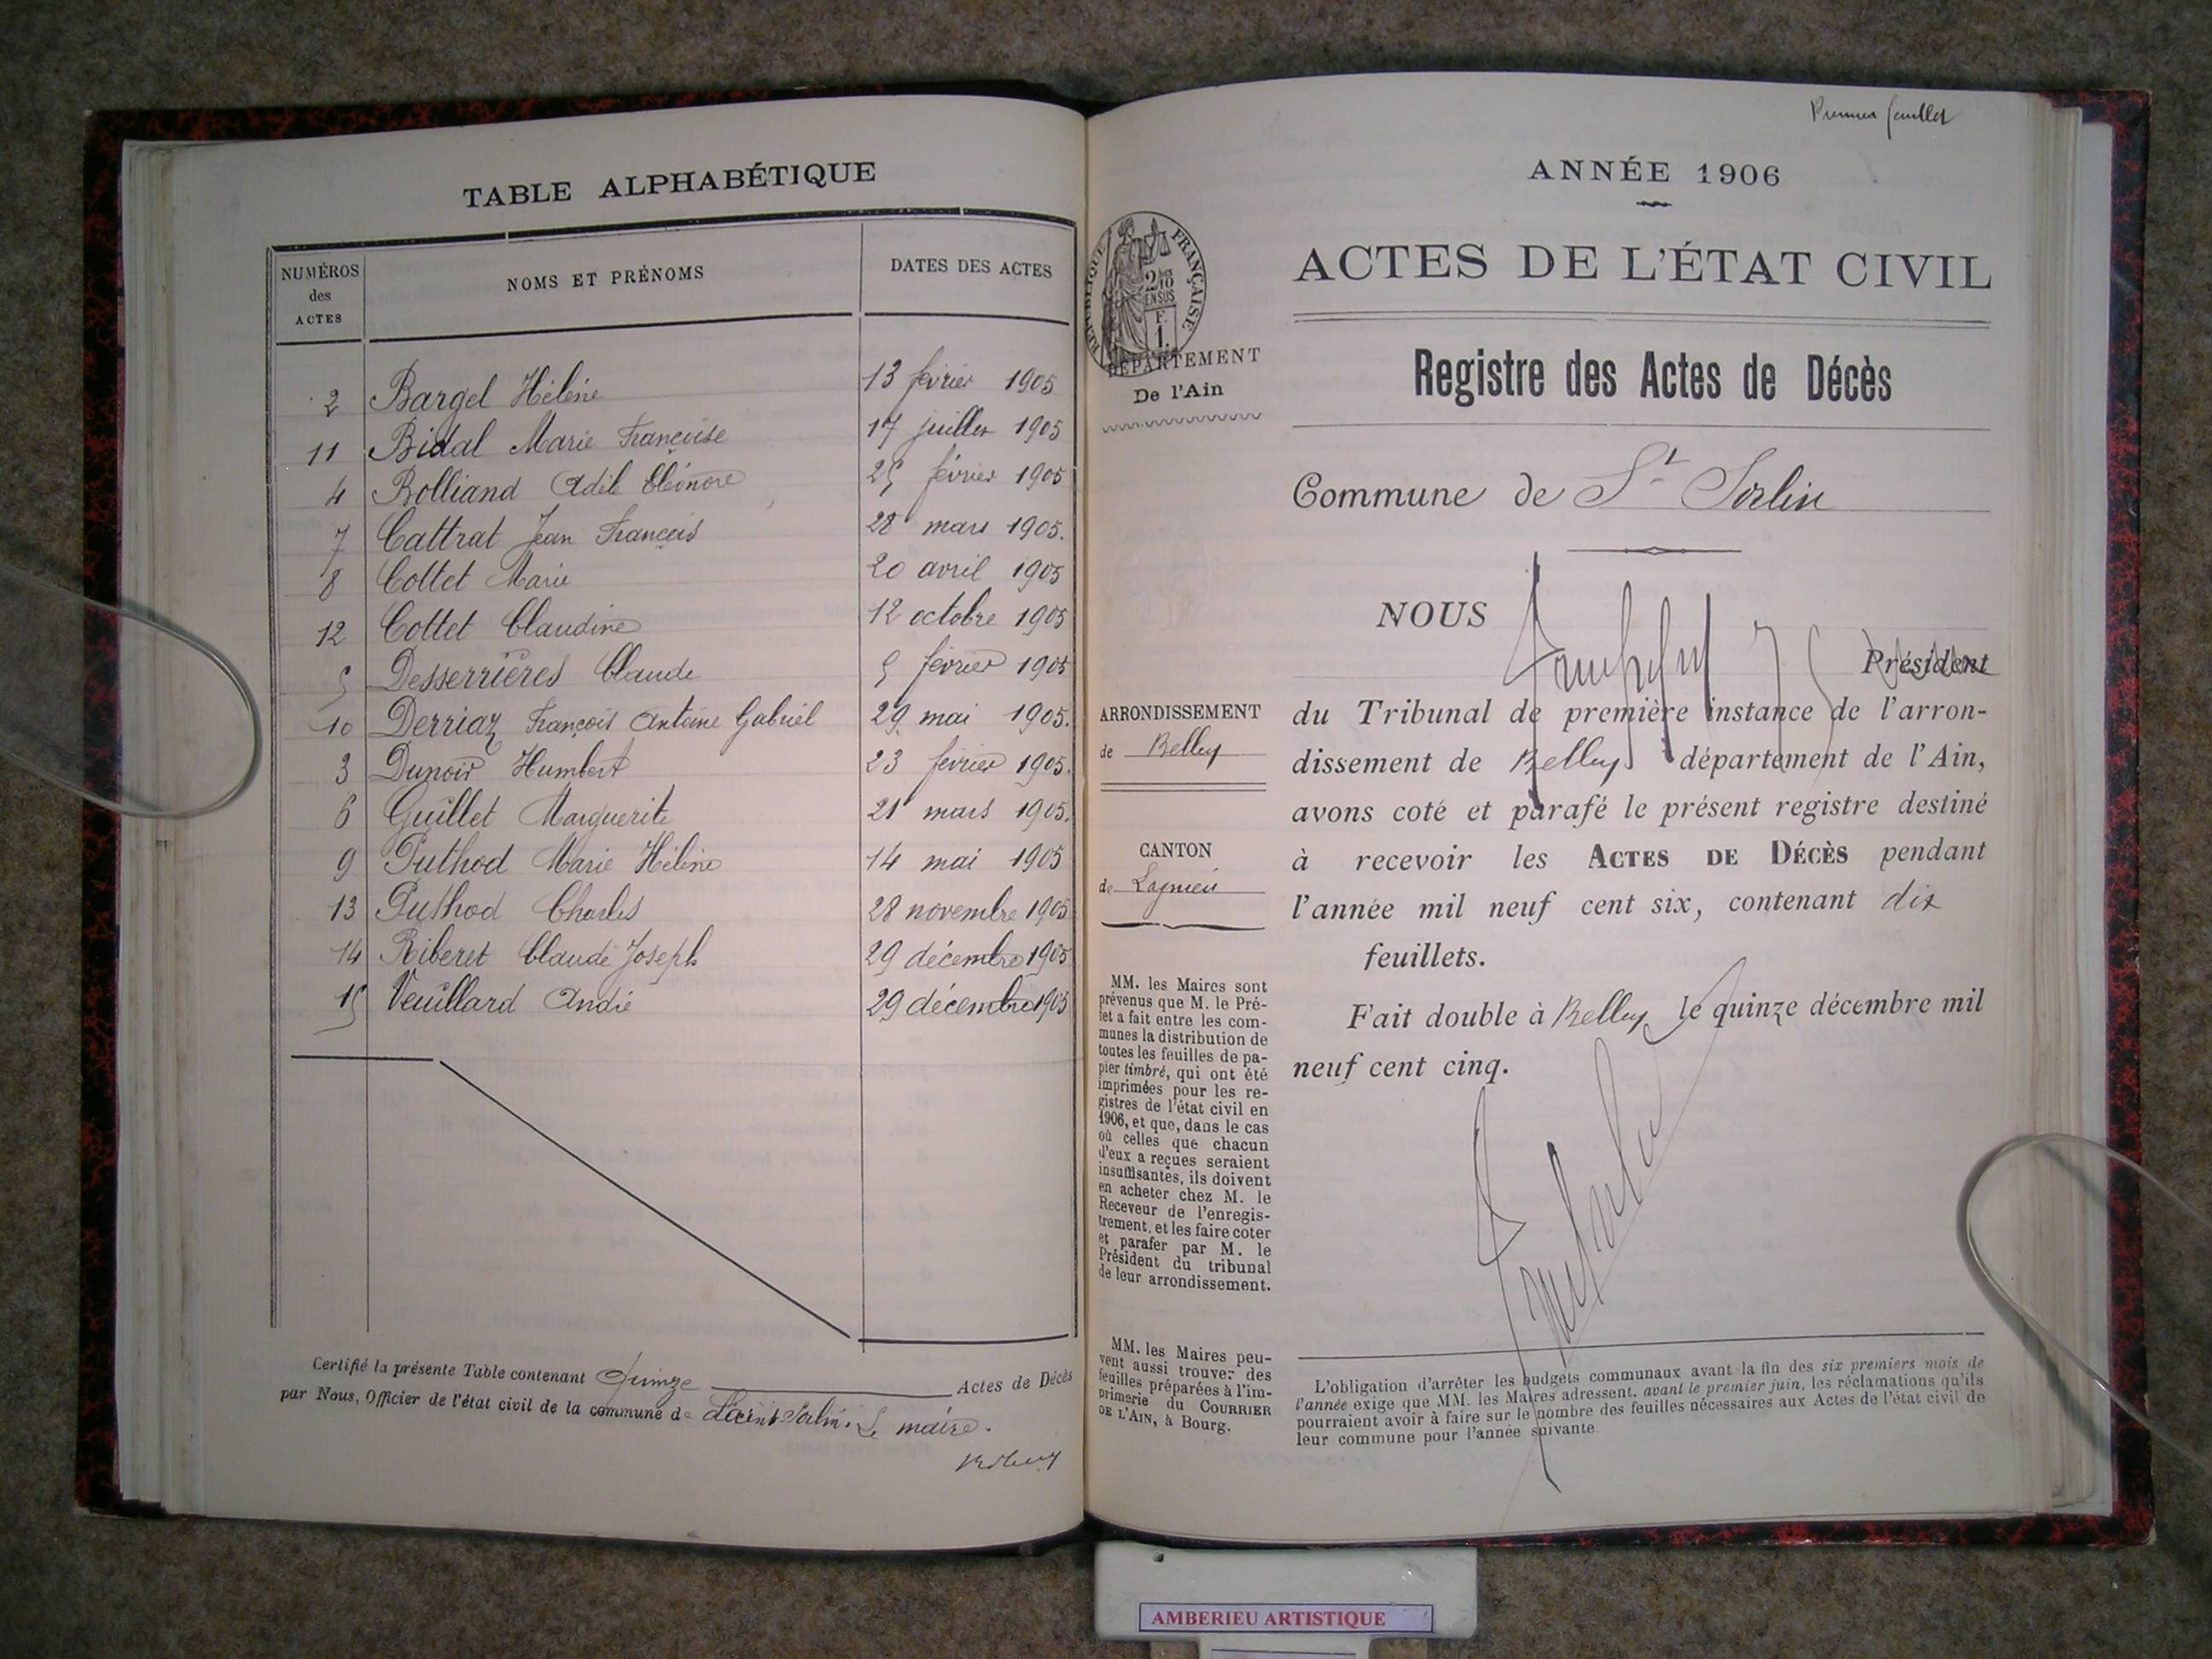 TABLE ALPHABÉTIQUE
NUMÉROS des ACTES
NOMS ET PRÉNOMS
DATES DES ACTES
2 Bargel Hélène 13 février 1905
11 Bidal Marie Françoise 17 juillet 1905
4 Rolliand Adèle Eléonore 25 février 1905
7 Cattrat Jean François 28 mars 1905.
8 Cottet Marie 20 avril 1905
12 Cottet Claudine 12 octobre 1905
5 Desserrières Claude 5 février 1905
10 Derriaz François Antoine Gabriel 29 mai 1905.
3 Dunoir Humbert 23 février 1905.
6 Guillet Marguerite 21 mars 1905.
9 Puthod Marie Hélène 14 mai 1905
13 Puthod Charles 28 novembre 1905
14 Riberet Claude Joseph 29 décembre 1905
15 Veuillard André 29 décembre 1905
Certifié la présente Table contenant Quinze Actes de Décès
par Nous, Officier de l'état civil de la commune de Saint Sorlin. Le maire.
Premier feuillet
ANNÉE 1906
RÉPUBLIQUE FRANÇAISE
2/10 EN SUS
F. 1.
DÉPARTEMENT
De l'Ain
ARRONDISSEMENT
de Belley
CANTON
de Lagnieu
MM. les Maires sont
prévenus que M. le Pré-
fet a fait entre les com-
munes la distribution de
toutes les feuilles de pa-
pier timbré, qui ont été
imprimées pour les re-
gistres de l'état civil en
1906, et que, dans le cas
où celles que chacun
d'eux a reçues seraient
insuffisantes, ils doivent
en acheter chez M. le
Receveur de l'enregis-
trement, et les faire coter
et parafer par M. le
Président du tribunal
de leur arrondissement.
MM. les Maires peu-
vent aussi trouver des
feuilles préparées à l'im-
primerie du COURRIER
DE L'AIN, à Bourg.
ACTES DE L'ÉTAT CIVIL
Registre des Actes de Décès
Commune de St Sorlin
NOUS
Président
du Tribunal de première instance de l'arron-
dissement de Belley département de l'Ain,
avons coté et parafé le présent registre destiné
à recevoir les ACTES DE DÉCÈS pendant
l'année mil neuf cent six, contenant dix
feuillets.
Fait double à Belley le quinze décembre mil
neuf cent cinq.
L'obligation d'arrêter les budgets communaux avant la fin des six premiers mois de
l'année exige que MM. les Maires adressent, avant le premier juin, les réclamations qu'ils
pourraient avoir à faire sur le nombre des feuilles nécessaires aux Actes de l'état civil de
leur commune pour l'année suivante.
AMBERIEU ARTISTIQUE